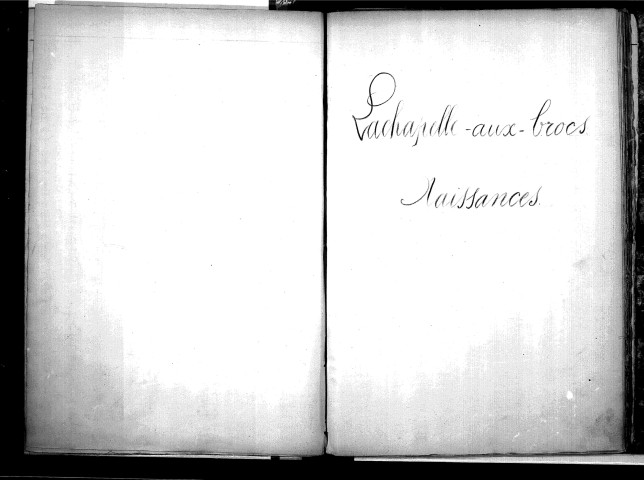 Lachapelle-aux-brocs
Naissances.